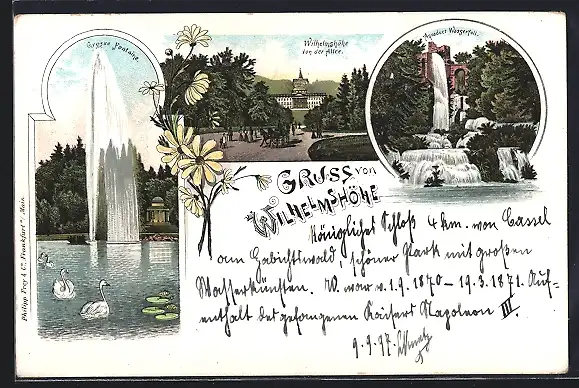 Grosse Fontaine.
Wilhelmshöhe
von der Allee.
Aquaduct Wasserfall.
GRUSS von
WILHELMSHÖHE
Königliches Schloß 4 km. von Cassel
am Habichtswald, schöner Park mit großen
Wasserkünsten. W. war v. 1.9.1870 - 19.3.1871. Auf-
enthalt des gefangenen Kaisers Napoleon III.
9.9.97
Philipp Frey & Co., Frankfurt a/Main.